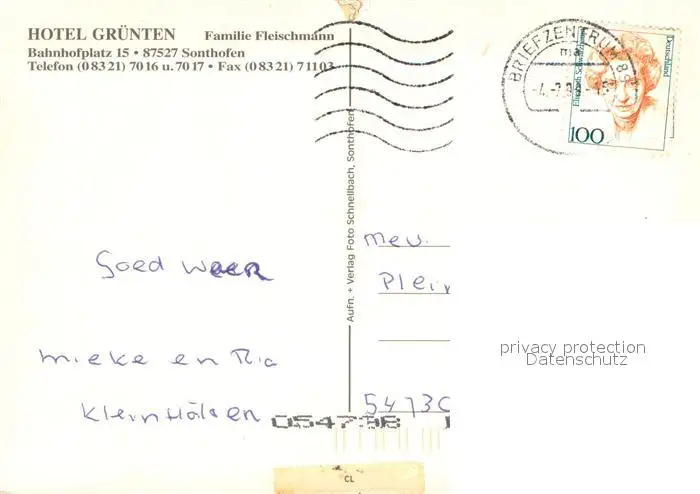 HOTEL GRÜNTEN Familie Fleischmann
Bahnhofplatz 15 • 87527 Sonthofen
Telefon (0 83 21) 70 16 u. 70 17 • Fax (0 83 21) 7 11 03
BRIEFZENTRUM 89
Elisabeth Schwarzhaupt
Deutschland
100
Aufn. + Verlag Foto Schnellbach, Sonthofen
Goed weer
mieke en Ria
mev.
5473C
privacy protection
Datenschutz
CL